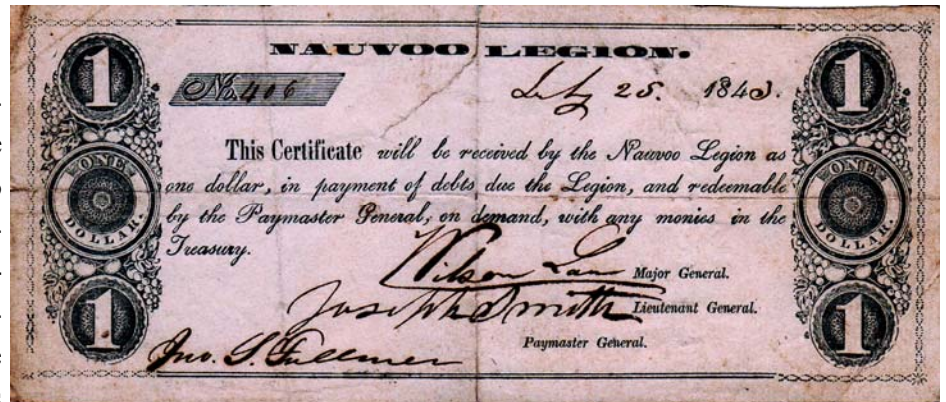 NAUVOO LEGION.
1
1
No. 406
July 25. 1843.
This Certificate will be received by the Nauvoo Legion as
one dollar, in payment of debts due the Legion, and redeemable
by the Paymaster General, on demand, with any monies in the
Treasury.
ONE DOLLAR.
ONE DOLLAR.
Wilson Law Major General.
Joseph Smith Lieutenant General.
Jno. S. Fullmer Paymaster General.
1
1